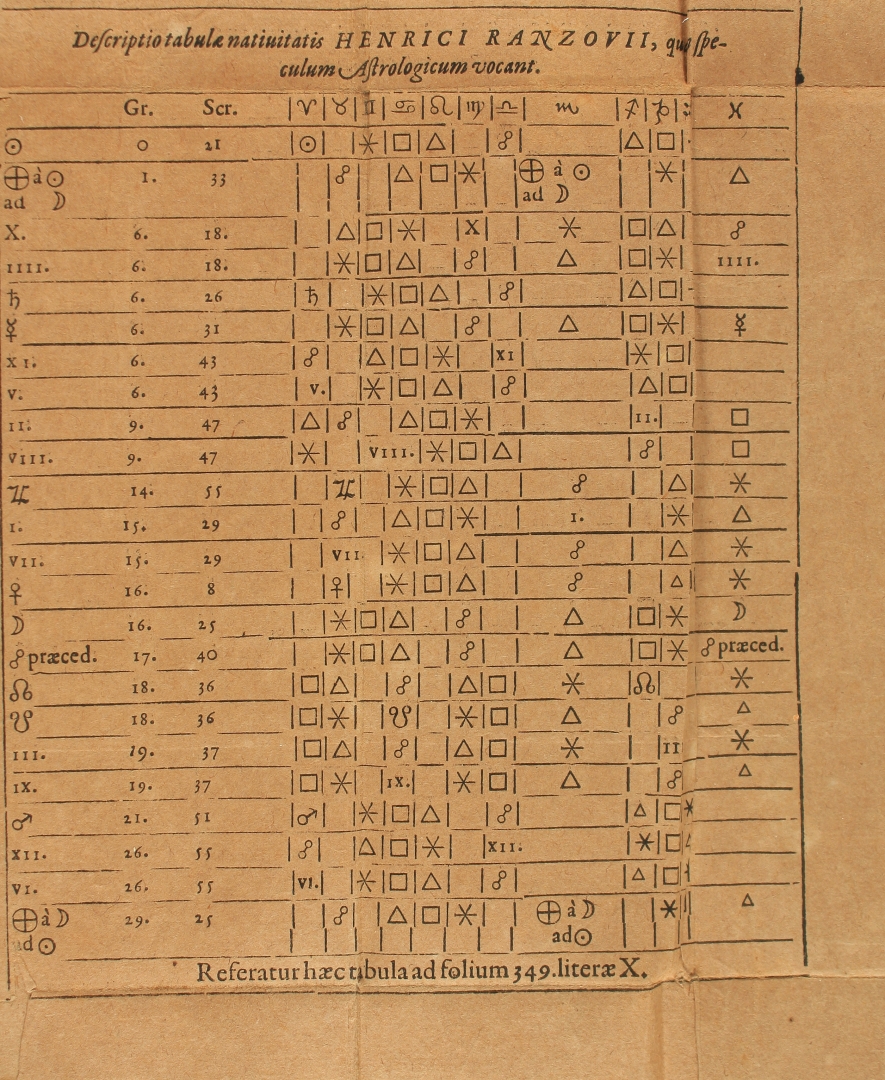 Descriptio tabulæ natiuitatis HENRICI RANZOVII, quā spe-
culum Astrologicum vocant.
Gr. Scr. ♈ ♉ ♊ ♋ ♌ ♍ ♎ ♏ ♐ ♑ ♓
☉ 0 21 ☉ ⚹ □ △ ☍ △ □
⊕ à ☉ 1. 33 ☍ △ □ ⚹ ⊕ à ☉ ⚹ △
ad ☽ ad ☽
X. 6. 18. △ □ ⚹ X ⚹ □ △ ☍
IIII. 6. 18. ⚹ □ △ ☍ △ □ ⚹ IIII.
♄ 6. 26 ♄ ⚹ □ △ ☍ △ □
☿ 6. 31 ⚹ □ △ ☍ △ □ ⚹ ☿
XI. 6. 43 ☍ △ □ ⚹ XI ⚹ □
V. 6. 43 V. ⚹ □ △ ☍ △ □
II. 9. 47 △ ☍ △ □ ⚹ II. □
VIII. 9. 47 ⚹ VIII. ⚹ □ △ ☍ □
♃ 14. 55 ♃ ⚹ □ △ ☍ △ ⚹
I. 15. 29 ☍ △ □ ⚹ I. ⚹ △
VII. 15. 29 VII. ⚹ □ △ ☍ △ ⚹
♀ 16. 8 ♀ ⚹ □ △ ☍ △ ⚹
☽ 16. 25 ⚹ □ △ ☍ △ □ ⚹ ☽
☍ præced. 17. 40 ⚹ □ △ ☍ △ □ ⚹ ☍ præced.
☊ 18. 36 □ △ ☍ △ □ ⚹ ☊ ⚹
☋ 18. 36 □ ⚹ ☋ ⚹ □ △ ☍ △
III. 19. 37 □ △ ☍ △ □ ⚹ II ⚹
IX. 19. 37 □ ⚹ IX. ⚹ □ △ ☍ △
♂ 21. 51 ♂ ⚹ □ △ ☍ △ □ ⚹
XII. 26. 55 ☍ △ □ ⚹ XII. ⚹ □
VI. 26. 55 VI. ⚹ □ △ ☍ △ □
⊕ à ☽ 29. 25 ☍ △ □ ⚹ ⊕ à ☽ ⚹ △
ad ☉ ad ☉
Referatur hæc tabula ad folium 349. literæ X.